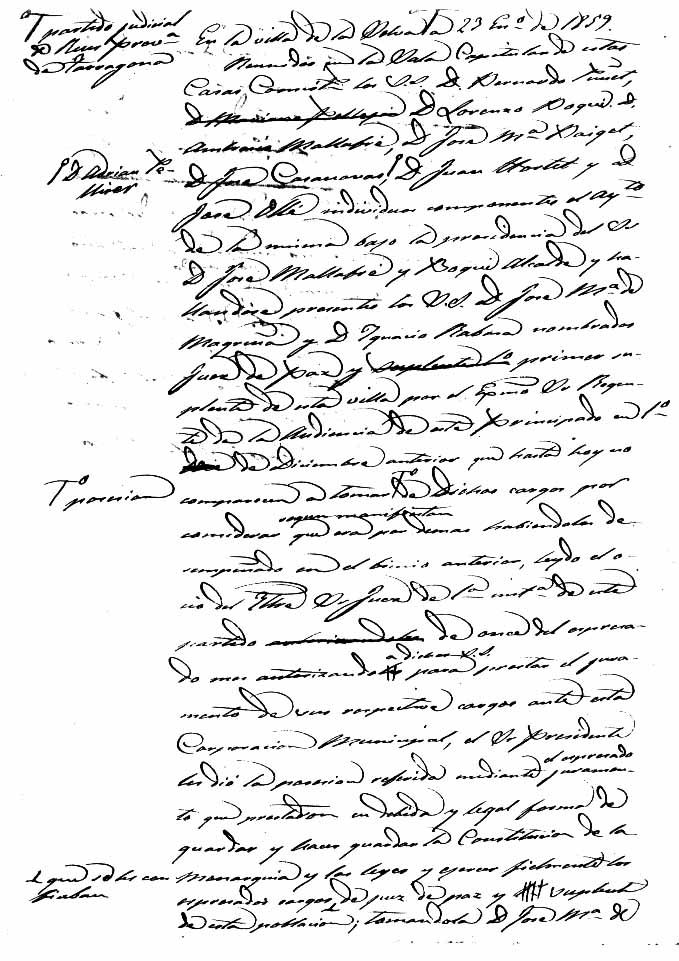 partido judicial
de Reus prov.ª
de Tarragona
En la villa de la Selva á 23 En.º de 1859.
Reunidos en la Sala Capitular de estas
Casas Consist.s los S.S. D. Bernardo
D. Mariano D. Lorenzo Roqué D.
Antonio Mallafré, D. José M.ª Puiget,
D. Adrian Pe-
lliser
D. José Casanovas, D. Juan Hortet y D.
José Ollé individuos componentes el Ay.to
de la misma bajo la presidencia del Sr
D. José Mallafré y Roqué Alcalde y ha-
llandose presentes los S.S. D. José M.ª de
Magriñá y D. Ignacio Rabasa nombrados
Juez de Paz y suplente 1.º primer su-
plente de esta villa por el Exmo Sr Regen-
te de la Audiencia de este Principado en 1.º
de Diciembre anterior que hasta hoy no
posesion
comparecen á tomar de dichos cargos por
segun manifiestan
considerar que era por demas habiendoles de-
sempeñado en el bienio anterior, leydo el o-
cio del Iltre Sr Juez de 1.ª inst.ª de este
partido autorizandoles de once del espresa-
á dichos S.S.
do mes autorizando para prestar el jura-
mento de sus respective cargos ante esta
Corporacion Municipal, el Sr Presidente
el espresado
les dió la posesion referida mediante juramen-
to que prestaron en debida y legal forma de
guardar y hacer guardar la Constitucion de la
Monarquia y las leyes y ejercer fielmente los
que se les con
fiaban
espresados cargos de juez de paz y suplente
de esta poblacion; tomandola D. José M.ª de